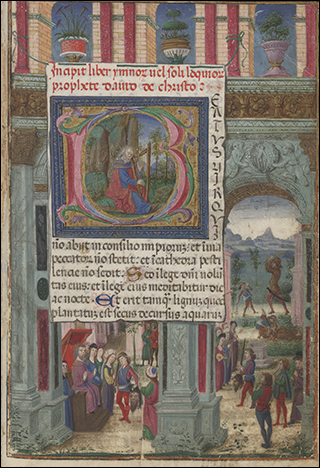 Incipit liber ymnoꝝ vel soliloquioꝝ
prophete dauid de christo :
B
EATUS VIR QUI
nō abijt in consilio impioruz: et in uia
peccatoꝝ nō stetit: et ī cathedra pesti
lencie nō sedit: Sed ī lege dn̄i volū
tas eius: et ī lege eius meditabitur die
ac nocte. Et erit tamq̄ lignuz quod
plantatuz est secus decursus aquaruz